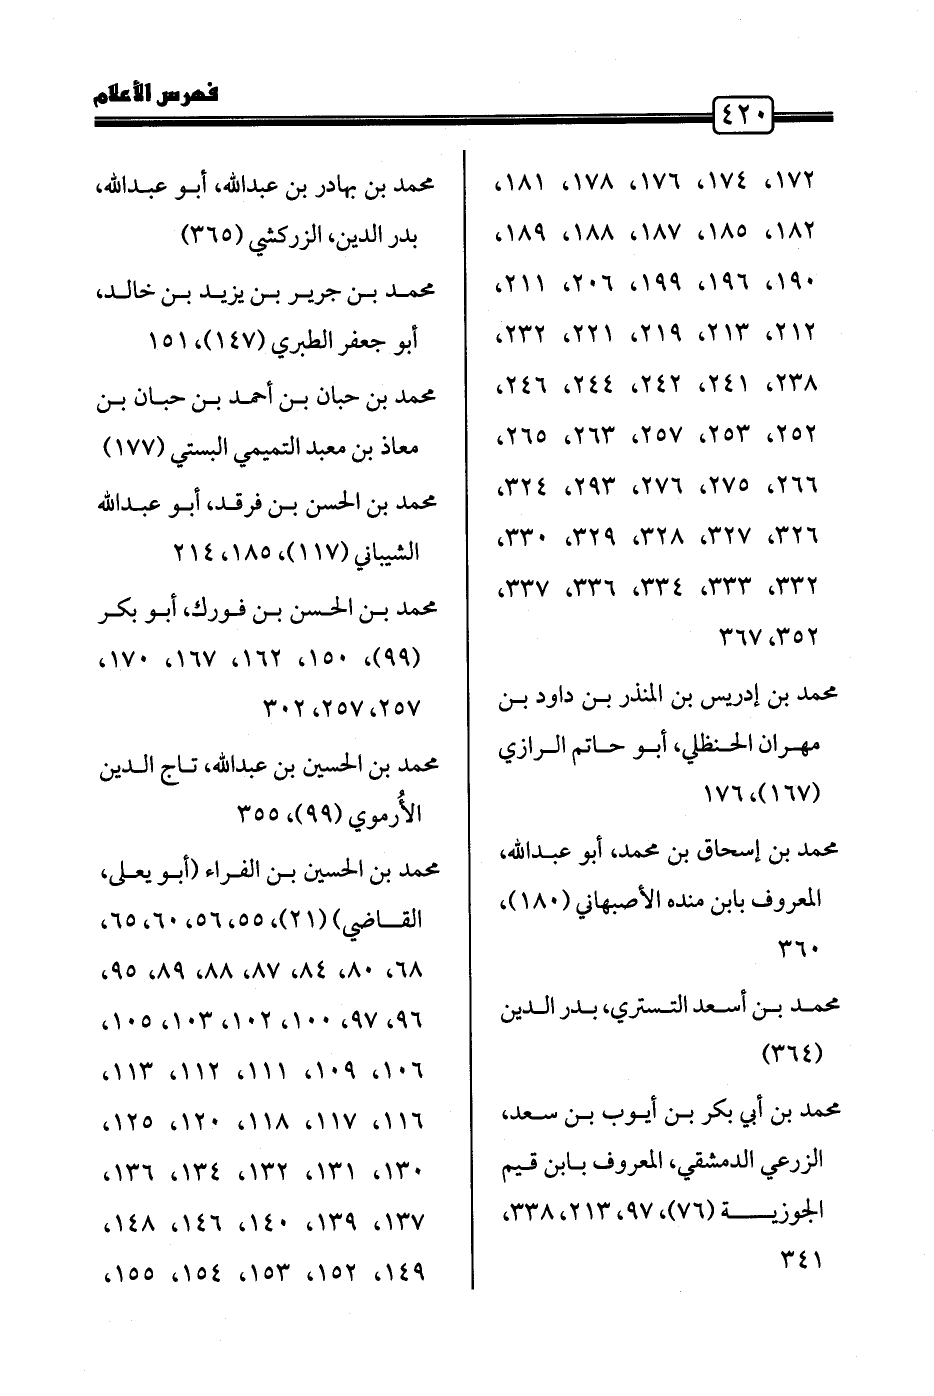 فهرس الأعلام
٤٢٠
١٧٢، ١٧٤، ١٧٦، ١٧٨، ١٨١،
١٨٢، ١٨٥، ١٨٧، ١٨٨، ١٨٩،
١٩٠، ١٩٦، ١٩٩، ٢٠٦، ٢١١،
٢١٢، ٢١٣، ٢١٩، ٢٢١، ٢٣٢،
٢٣٨، ٢٤١، ٢٤٢، ٢٤٤، ٢٤٦،
٢٥٢، ٢٥٣، ٢٥٧، ٢٦٣، ٢٦٥،
٢٦٦، ٢٧٥، ٢٧٦، ٢٩٣، ٣٢٤،
٣٢٦، ٣٢٧، ٣٢٨، ٣٢٩، ٣٣٠،
٣٣٢، ٣٣٣، ٣٣٤، ٣٣٦، ٣٣٧،
٣٥٢، ٣٦٧
محمد بن إدريس بن المنذر بن داود بن
مهران الحنظلي، أبو حاتم الرازي
(١٦٧)، ١٧٦
محمد بن إسحاق بن محمد، أبو عبدالله،
المعروف بابن منده الأصبهاني (١٨٠)،
٣٦٠
محمد بن أسعد التستري، بدر الدين
(٣٦٤)
محمد بن أبي بكر بن أيوب بن سعد،
الزرعي الدمشقي، المعروف بابن قيم
الجوزية (٧٦)، ٩٧، ٢١٣، ٣٣٨،
٣٤١
محمد بن بهادر بن عبدالله، أبو عبدالله،
بدر الدين، الزركشي (٣٦٥)
محمد بن جرير بن يزيد بن خالد،
أبو جعفر الطبري (١٤٧)، ١٥١
محمد بن حبان بن أحمد بن حبان بن
معاذ بن معبد التميمي البستي (١٧٧)
محمد بن الحسن بن فرقد، أبو عبدالله
الشيباني (١١٧)، ١٨٥، ٢١٤
محمد بن الحسن بن فورك، أبو بكر
(٩٩)، ١٥٠، ١٦٢، ١٦٧، ١٧٠،
٢٥٧، ٢٥٧، ٣٠٢
محمد بن الحسين بن عبدالله، تاج الدين
الأُرموي (٩٩)، ٣٥٥
محمد بن الحسين بن الفراء (أبو يعلى،
القاضي) (٢١)، ٥٥، ٥٦، ٦٠، ٦٥،
٦٨، ٨٠، ٨٤، ٨٧، ٨٨، ٨٩، ٩٥،
٩٦، ٩٧، ١٠٠، ١٠٢، ١٠٣، ١٠٥،
١٠٦، ١٠٩، ١١١، ١١٢، ١١٣،
١١٦، ١١٧، ١١٨، ١٢٠، ١٢٥،
١٣٠، ١٣١، ١٣٢، ١٣٤، ١٣٦،
١٣٧، ١٣٩، ١٤٠، ١٤٦، ١٤٨،
١٤٩، ١٥٢، ١٥٣، ١٥٤، ١٥٥،